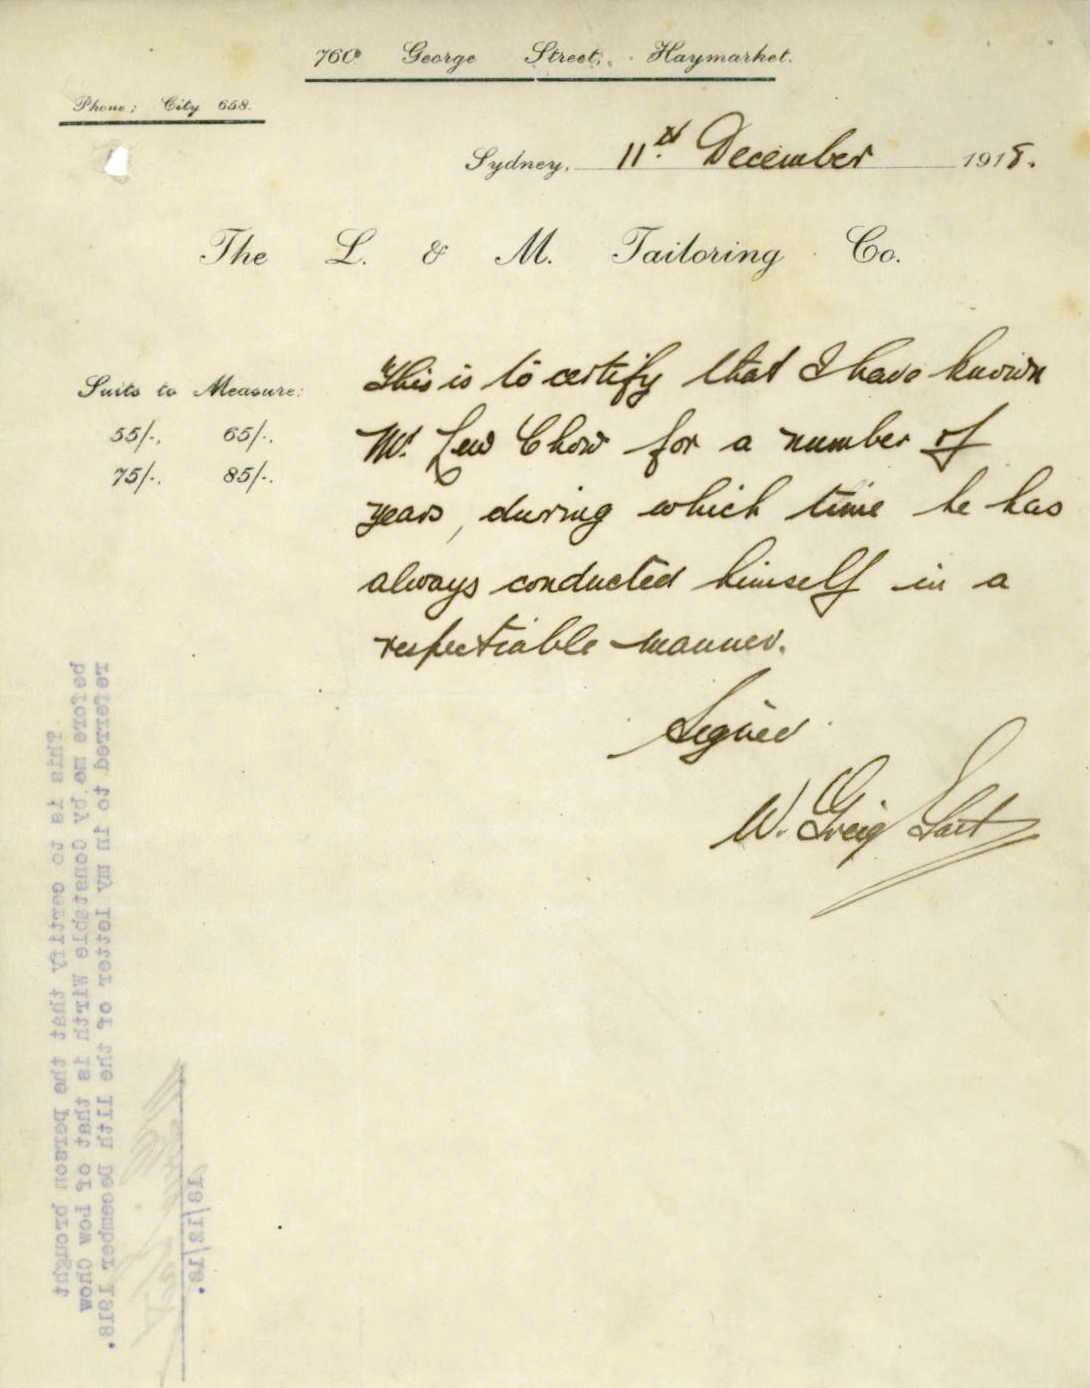 760 George Street, Haymarket.
Phone: City 658.
Sydney, 11th December 1918.
The L. & M. Tailoring Co.
Suits to Measure:
55/-, 65/-,
75/-, 85/-.
This is to certify that I have known
Mr. Lew Chow for a number of
years, during which time he has
always conducted himself in a
respectiable manner.
Signed
W. Greig
This is to certify that the person brought
before me by Constable Wirth is that of Low Chow
referred to in my letter of the 11th December 1918.
18/12/18.